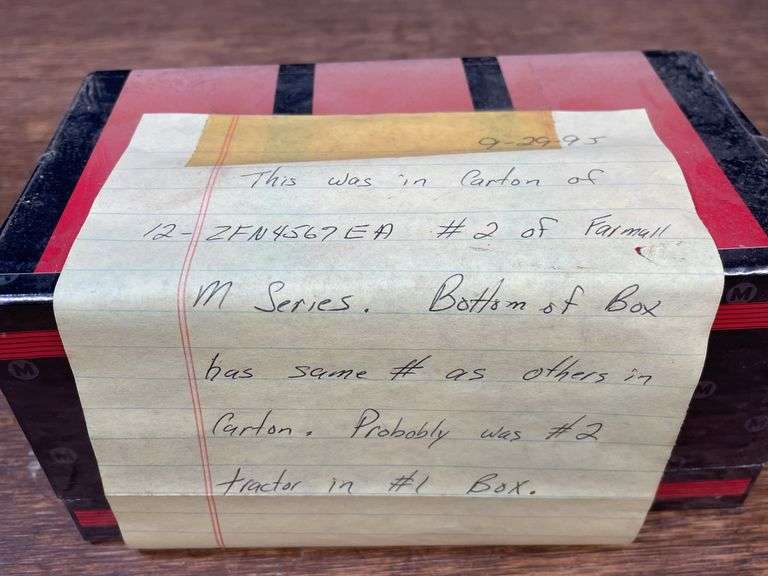 9-29-95
This was in Carton of
12- ZFN4567EA #2 of Farmall
M Series. Bottom of Box
has same # as others in
Carton. Probobly was #2
tractor in #1 Box.
M
M
M
M
M